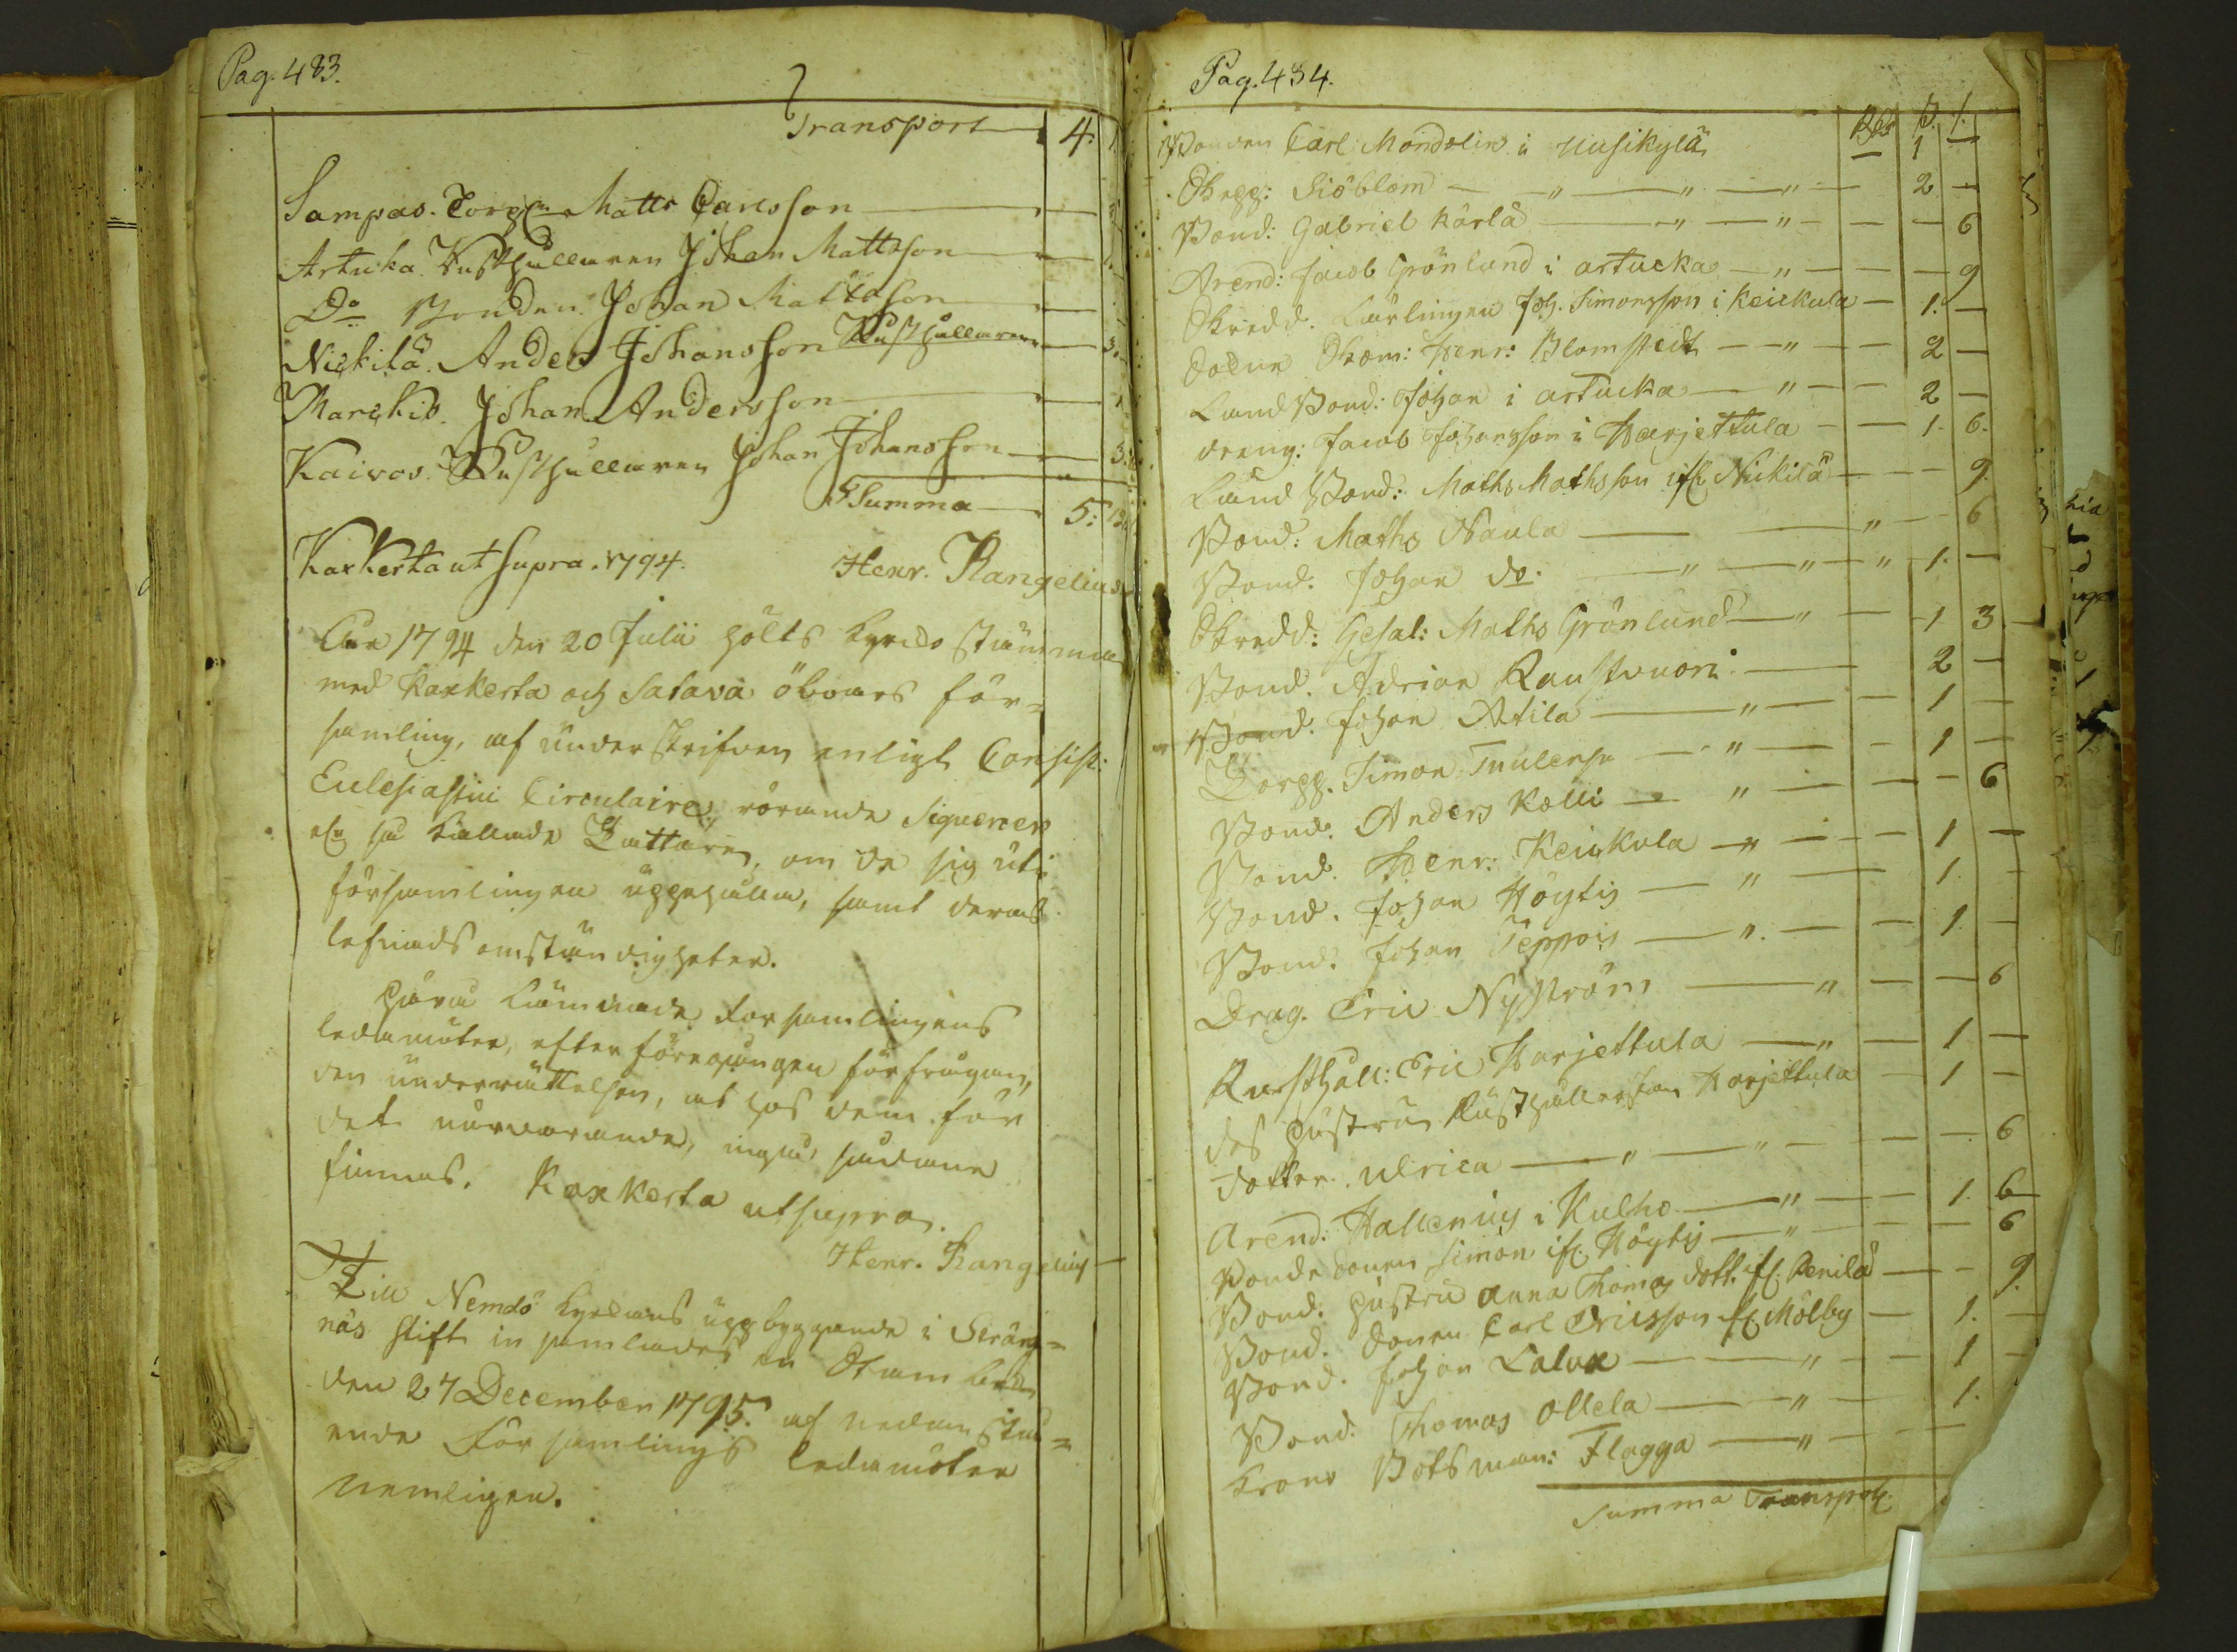 Pag. 483.
Transport 4.
Sampas. Torp. Matts Carlsson
Artuka. Rusthållaren Johan Mattsson
Do Bonden Johan Mattsson
Nickilä. Anders Johansson Rusthållaren 3.
Marckis. Johan Andersson
Kaivos. Rusthållaren Johan Johansson 3.
Summa 5:
Kaxkerta ut supra. 1794. Henr. Rangelius
Åhr 1794 den 20 Julii hölts Kyrcko stämma
med Kaxkerta och Satava öboars för=
samling, af underskrifven enligt Consist:
Ecclesiastici Circulaire, rörande Siguener
eller så kallade Tattare, om de sig uti
församlingen uppehålla, samt deras
lefnads omständigheter.
Härå lämnade församlingens
ledamöter, efter föregången förfrågan,
den underrättelsen, at hos dem för
det närvarande, inga sådane
finnas. Kaxkerta ut supra.
Henr. Rangelius
Till Nemdö Kyrckans uppbyggande i Sträng=
näs Stift in samlades en
den 27 December 1795. af nedanstå=
ende Församlings ledamöter
nemligen.
Pag. 484.
Rdr ß. /.
Bonden Carl Mandelin i Uusikylä — 1 —
Skepp: Siöblom — " — " — " — 2 —
Bond: Gabriel Kärlä — " — " — — 6
Arend: Jacob Grönlund i artucka — " — — — 9
Skredd. Lärlingen Joh. Simonsson i Keickula — 1. —
Henr: Blomstedt — " — 2 —
Land Bond: Johan i artucka — " — 2 —
dreng: Jacob Johansson i Harjettula — 1. 6.
Land Bond: Maths Mathsson ifr. Nickilä — — 9.
Bond: Maths Naula — " — 6
Bond. Johan do. — " — " — " 1. —
Skredd: Gesäl: Maths Grönlund — " — 1 3
Bond. Adrian Raustvuori — 2 —
Bond. Johan Attila — " — 1 —
Torpp. Simon — " — 1 —
Bond. Anders Källi — " — — 6
Bond. Henr: Keickula — " — 1 —
Bond. Johan Höytis — " — 1. —
Bond. Johan Teppois — " — 1. —
Drag. Eric Nyström — " — — 6
Rusthåll: Eric Harjettula — " — 1 —
des hustru Rusthållerskan Harjettula — 1 —
dotter. Ulrica — " — " — — 6
Arend: Hallenius i Kulho — " — 1. 6
Bonde Sonen Simon ifr. Höytis — " — — 6
Bond. hustru Anna Thomas dott. ifr. Penilä — — 9.
Bond. Sonen Carl Ericsson ifr. Mölby — 1. —
Bond. Johan Lalax — " — 1 —
Bond. Thomas Ollela — " — 1.
Krono Botsman: Flagga — " —
Summa Transport